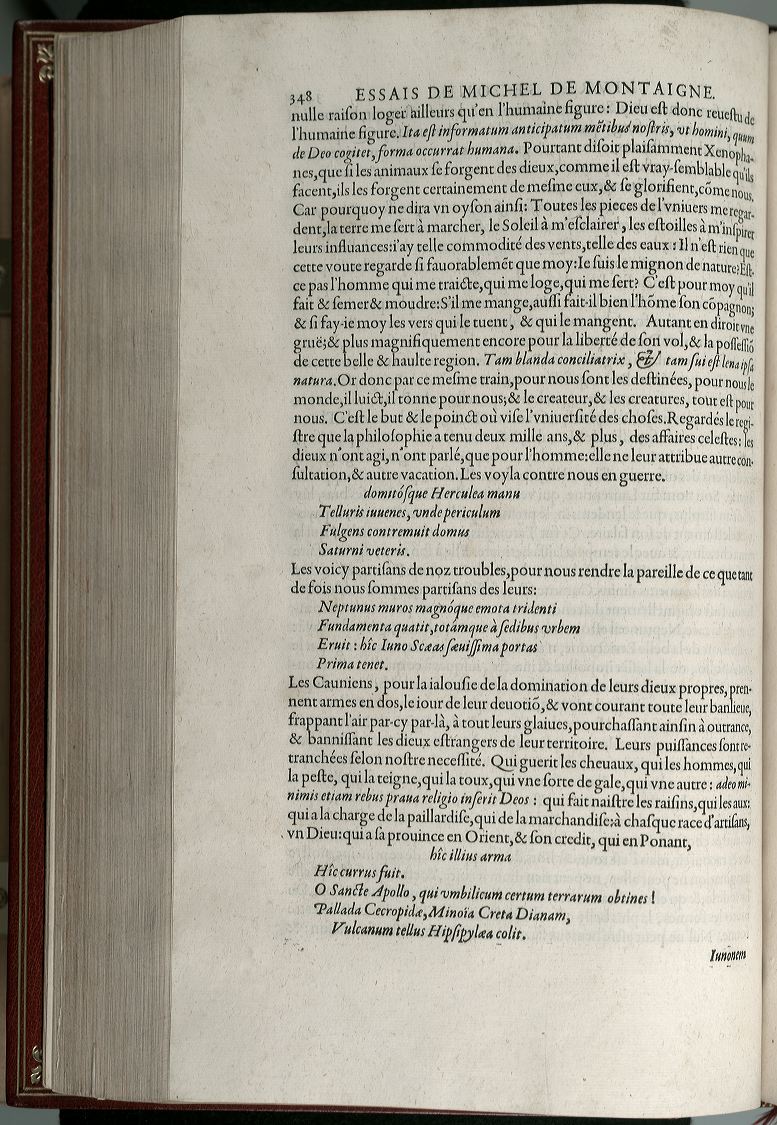 348 ESSAIS DE MICHEL DE MONTAIGNE.
nulle raiſon loger ailleurs qu'en l'humaine figure: Dieu eſt donc reueſtu de
l'humaine figure. Ita eſt informatum anticipatum mẽtibus noſtris, vt homini, quum
de Deo cogitet, forma occurrat humana. Pourtant diſoit plaiſamment Xenopha-
nes, que ſi les animaux ſe forgent des dieux, comme il eſt vray-ſemblable qu'ils
facent, ils les forgent certainement de meſme eux, & ſe glorifient, cõme nous.
Car pourquoy ne dira vn oyſon ainſi: Toutes les pieces de l'vniuers me regar-
dent, la terre me ſert à marcher, le Soleil à m'eſclairer, les eſtoilles à m'inſpirer
leurs influances: i'ay telle commodité des vents, telle des eaux: Il n'eſt rien que
cette voute regarde ſi fauorablemẽt que moy: Ie ſuis le mignon de nature: Eſt-
ce pas l'homme qui me traicte, qui me loge, qui me ſert? C'eſt pour moy qu'il
fait & ſemer & moudre: S'il me mange, auſſi fait-il bien l'hõme ſon cõpagnon;
& ſi fay-ie moy les vers qui le tuent, & qui le mangent. Autant en diroit vne
gruë; & plus magnifiquement encore pour la liberté de ſon vol, & la poſſeſſiõ
de cette belle & haulte region. Tam blanda conciliatrix, & tam ſui eſt lena ipſa
natura. Or donc par ce meſme train, pour nous ſont les deſtinées, pour nous le
monde, il luict, il tonne pour nous; & le createur, & les creatures, tout eſt pour
nous. C'eſt le but & le poinct où viſe l'vniuerſité des choſes. Regardés le regi-
ſtre que la philoſophie a tenu deux mille ans, & plus, des affaires celeſtes: les
dieux n'ont agi, n'ont parlé, que pour l'homme: elle ne leur attribue autre con-
ſultation, & autre vacation. Les voyla contre nous en guerre.
domitóſque Herculea manu
Telluris iuuenes, vnde periculum
Fulgens contremuit domus
Saturni veteris.
Les voicy partiſans de noz troubles, pour nous rendre la pareille de ce que tant
de fois nous ſommes partiſans des leurs:
Neptunus muros magnóque emota tridenti
Fundamenta quatit, totámque à ſedibus vrbem
Eruit: hîc Iuno Scæas ſæuiſſima portas
Prima tenet.
Les Cauniens, pour la ialouſie de la domination de leurs dieux propres, pren-
nent armes en dos, le iour de leur deuotiõ, & vont courant toute leur banlieue,
frappant l'air par-cy par-là, à tout leurs glaiues, pourchaſſant ainſin à outrance,
& banniſſant les dieux eſtrangers de leur territoire. Leurs puiſſances ſont re-
tranchées ſelon noſtre neceſſité. Qui guerit les cheuaux, qui les hommes, qui
la peſte, qui la teigne, qui la toux, qui vne ſorte de gale, qui vne autre: adeo mi-
nimis etiam rebus praua religio inſerit Deos: qui fait naiſtre les raiſins, qui les aux:
qui a la charge de la paillardiſe, qui de la marchandiſe: à chaſque race d'artiſans,
vn Dieu: qui a ſa prouince en Orient, & ſon credit, qui en Ponant,
hîc illius arma
Hîc currus fuit.
O Sancte Apollo, qui vmbilicum certum terrarum obtines!
Pallada Cecropidæ, Minoïa Creta Dianam,
Vulcanum tellus Hipſipylæa colit.
Iunonem